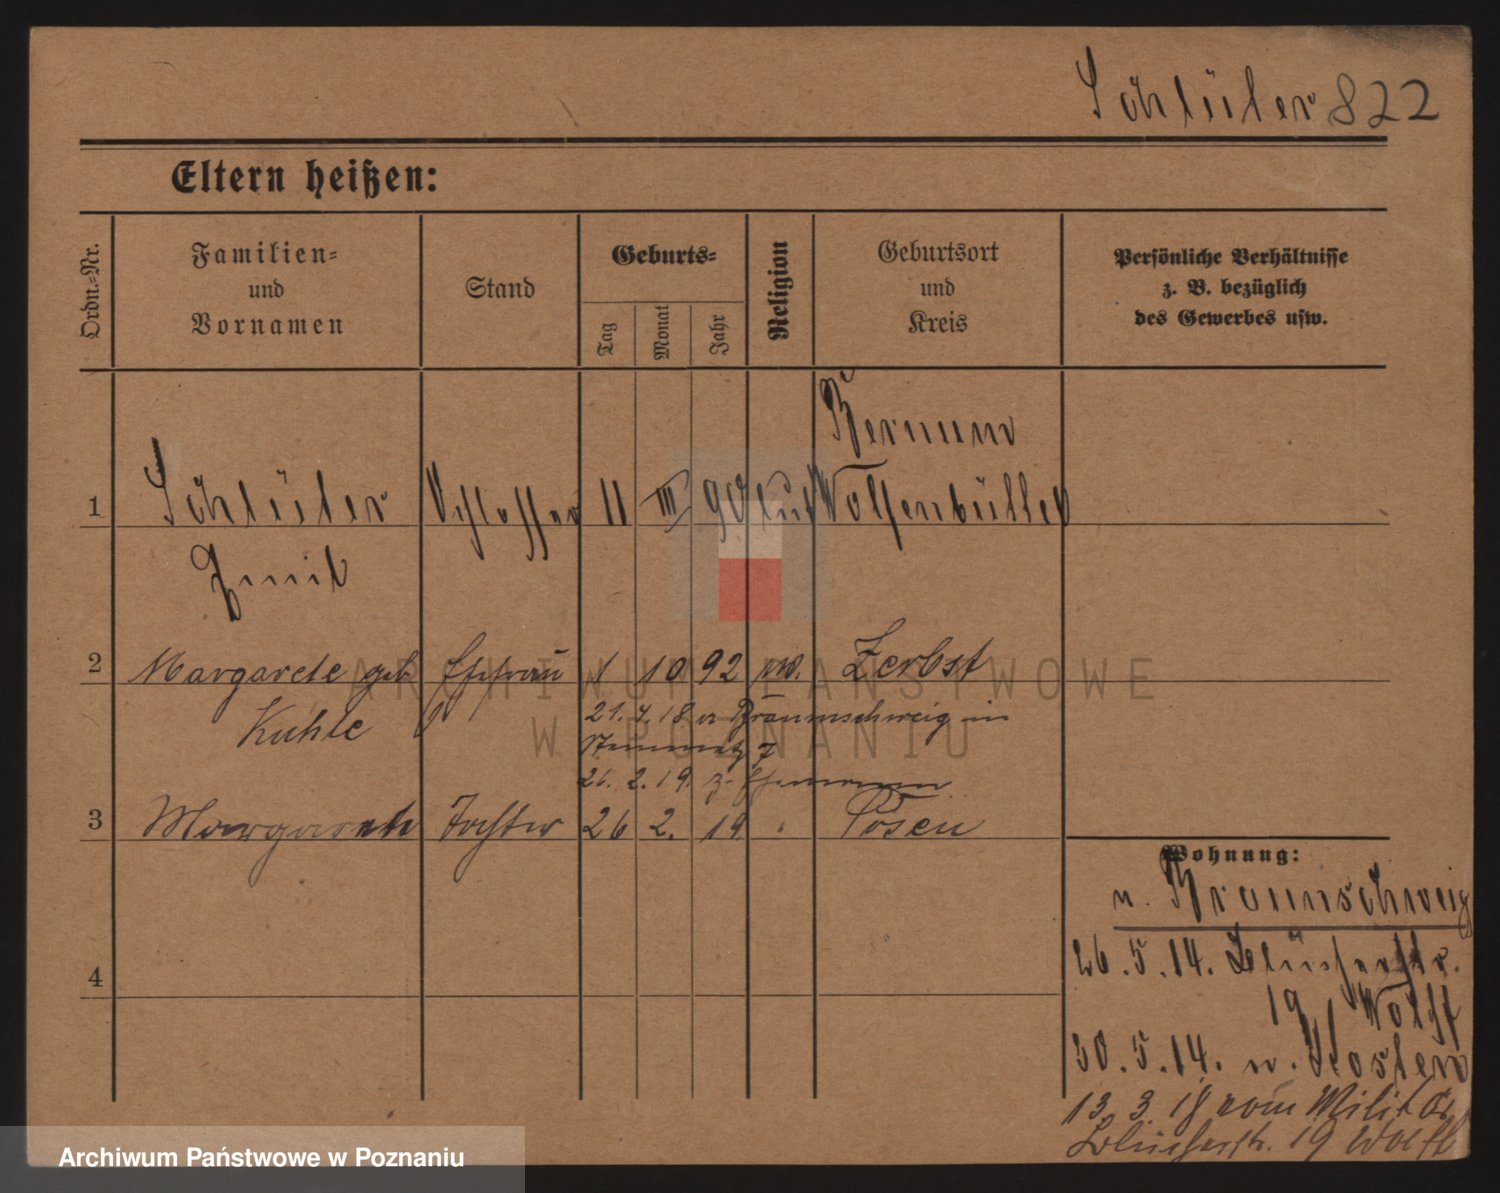 Schlüter 822
Eltern heißen:
Ordn.-Nr.
Familien-
und
Vornamen
Stand
Geburts-
Tag
Monat
Jahr
Religion
Geburtsort
und
Kreis
Persönliche Verhältnisse
z. B. bezüglich
des Gewerbes usw.
1 Schlüter Schlosser 11 III 90 luth Wolfenbüttel
Emil
2 Margarete geb Ehefrau 1 10 92 Zerbst
Kühle
21. 4. 18. v Braunschweig in
26. 2. 19. z. Ehemann
3 Margarete Tochter 26 2. 19 " Posen
4
Wohnung:
n. Braunschweig
26.5.14. Blücherstr.
19 Wolff
30.5.14. n. Kosten
13. 3. 18 vom Militär
Blücherstr. 19 Wolff
ARCHIWUM PAŃSTWOWE
W POZNANIU
Archiwum Państwowe w Poznaniu